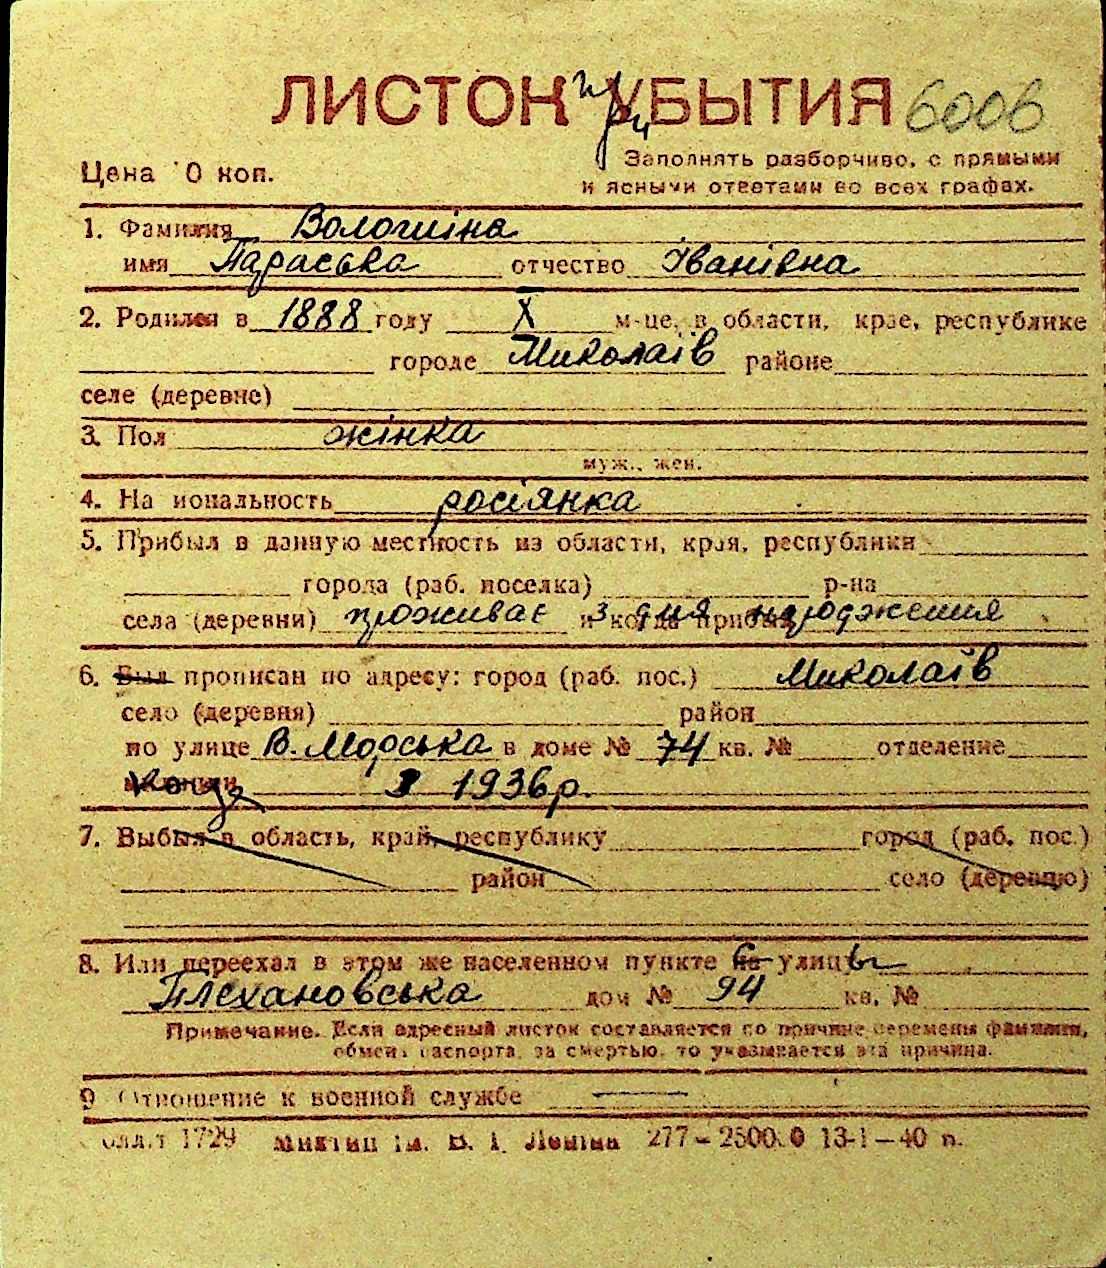 ЛИСТОК при УБЫТИЯ 6006
Цена 0 коп.
Заполнять разборчиво, с прямыми
и ясными ответами во всех графах.
1. Фамилия Волошіна
имя Параська отчество Іванівна
2. Родился в 1888 году X м-це, в области, крае, республике
городе Миколаїв районе
селе (деревне)
3. Пол жінка
муж., жен.
4. На иональность росіянка
5. Прибыл в данную местность из области, края, республики
города (раб. поселка) р-на
села (деревни) проживає и когда прибыл з дня народження
6. Был прописан по адресу: город (раб. пос.) Миколаїв
село (деревня) район
по улице В. Морська в доме № 74 кв. № отделение
когда З 1936 р.
7. Выбыл в область, край, республику город (раб. пос.)
район село (деревню)
8. Или переехал в этом же населенном пункте с улицы
Плехановська дом № 94 кв. №
Примечание. Если адресный листок составляется по причине перемены фамилии,
обмена паспорта, за смертью, то указывается эта причина.
9 Отношение к военной службе —
1729 им. В. І. Леніна 277–25000 13-1–40 п.